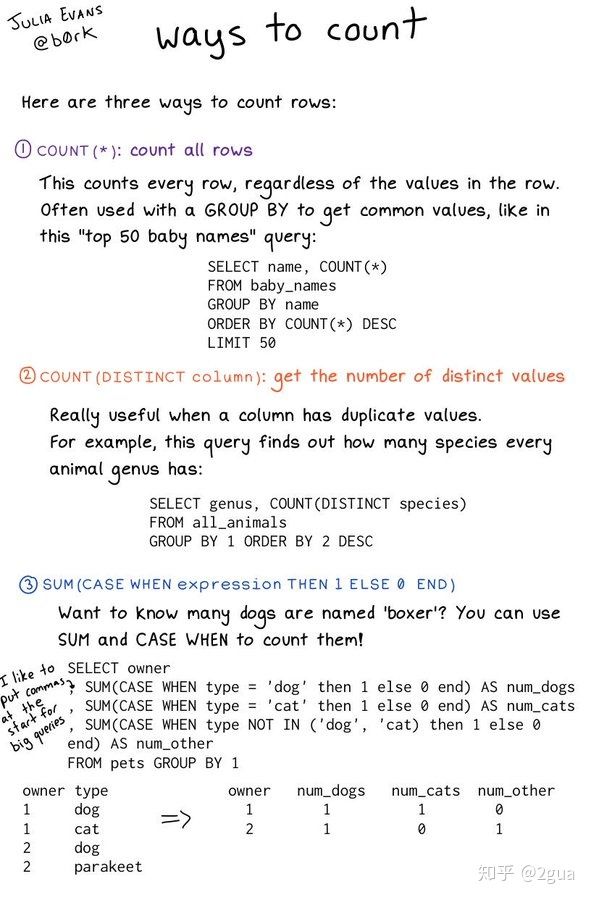 JULIA EVANS
@b0rk
ways to count
Here are three ways to count rows:
① COUNT(*): count all rows
This counts every row, regardless of the values in the row.
Often used with a GROUP BY to get common values, like in
this "top 50 baby names" query:
SELECT name, COUNT(*)
FROM baby_names
GROUP BY name
ORDER BY COUNT(*) DESC
LIMIT 50
② COUNT(DISTINCT column): get the number of distinct values
Really useful when a column has duplicate values.
For example, this query finds out how many species every
animal genus has:
SELECT genus, COUNT(DISTINCT species)
FROM all_animals
GROUP BY 1 ORDER BY 2 DESC
③ SUM(CASE WHEN expression THEN 1 ELSE 0 END)
Want to know many dogs are named 'boxer'? You can use
SUM and CASE WHEN to count them!
I like to
put commas
at the
start for
big queries
SELECT owner
, SUM(CASE WHEN type = 'dog' then 1 else 0 end) AS num_dogs
, SUM(CASE WHEN type = 'cat' then 1 else 0 end) AS num_cats
, SUM(CASE WHEN type NOT IN ('dog', 'cat) then 1 else 0
end) AS num_other
FROM pets GROUP BY 1
owner type => owner num_dogs num_cats num_other
1 dog 1 1 1 0
1 cat 2 1 0 1
2 dog
2 parakeet
知乎 @2gua